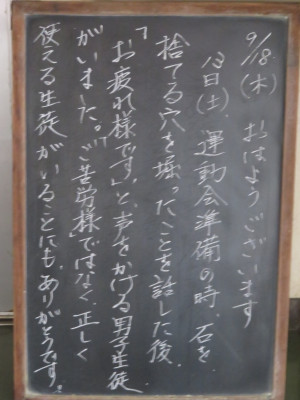 9/18(木) おはようございます
13日(土)、運動会準備の時、石を
捨てる穴を掘ったことを話した後、
「お疲れ様です」と声をかける男子生徒
がいました。「ご苦労様」ではなく、正しく
使える生徒がいることにも、ありがとうです。